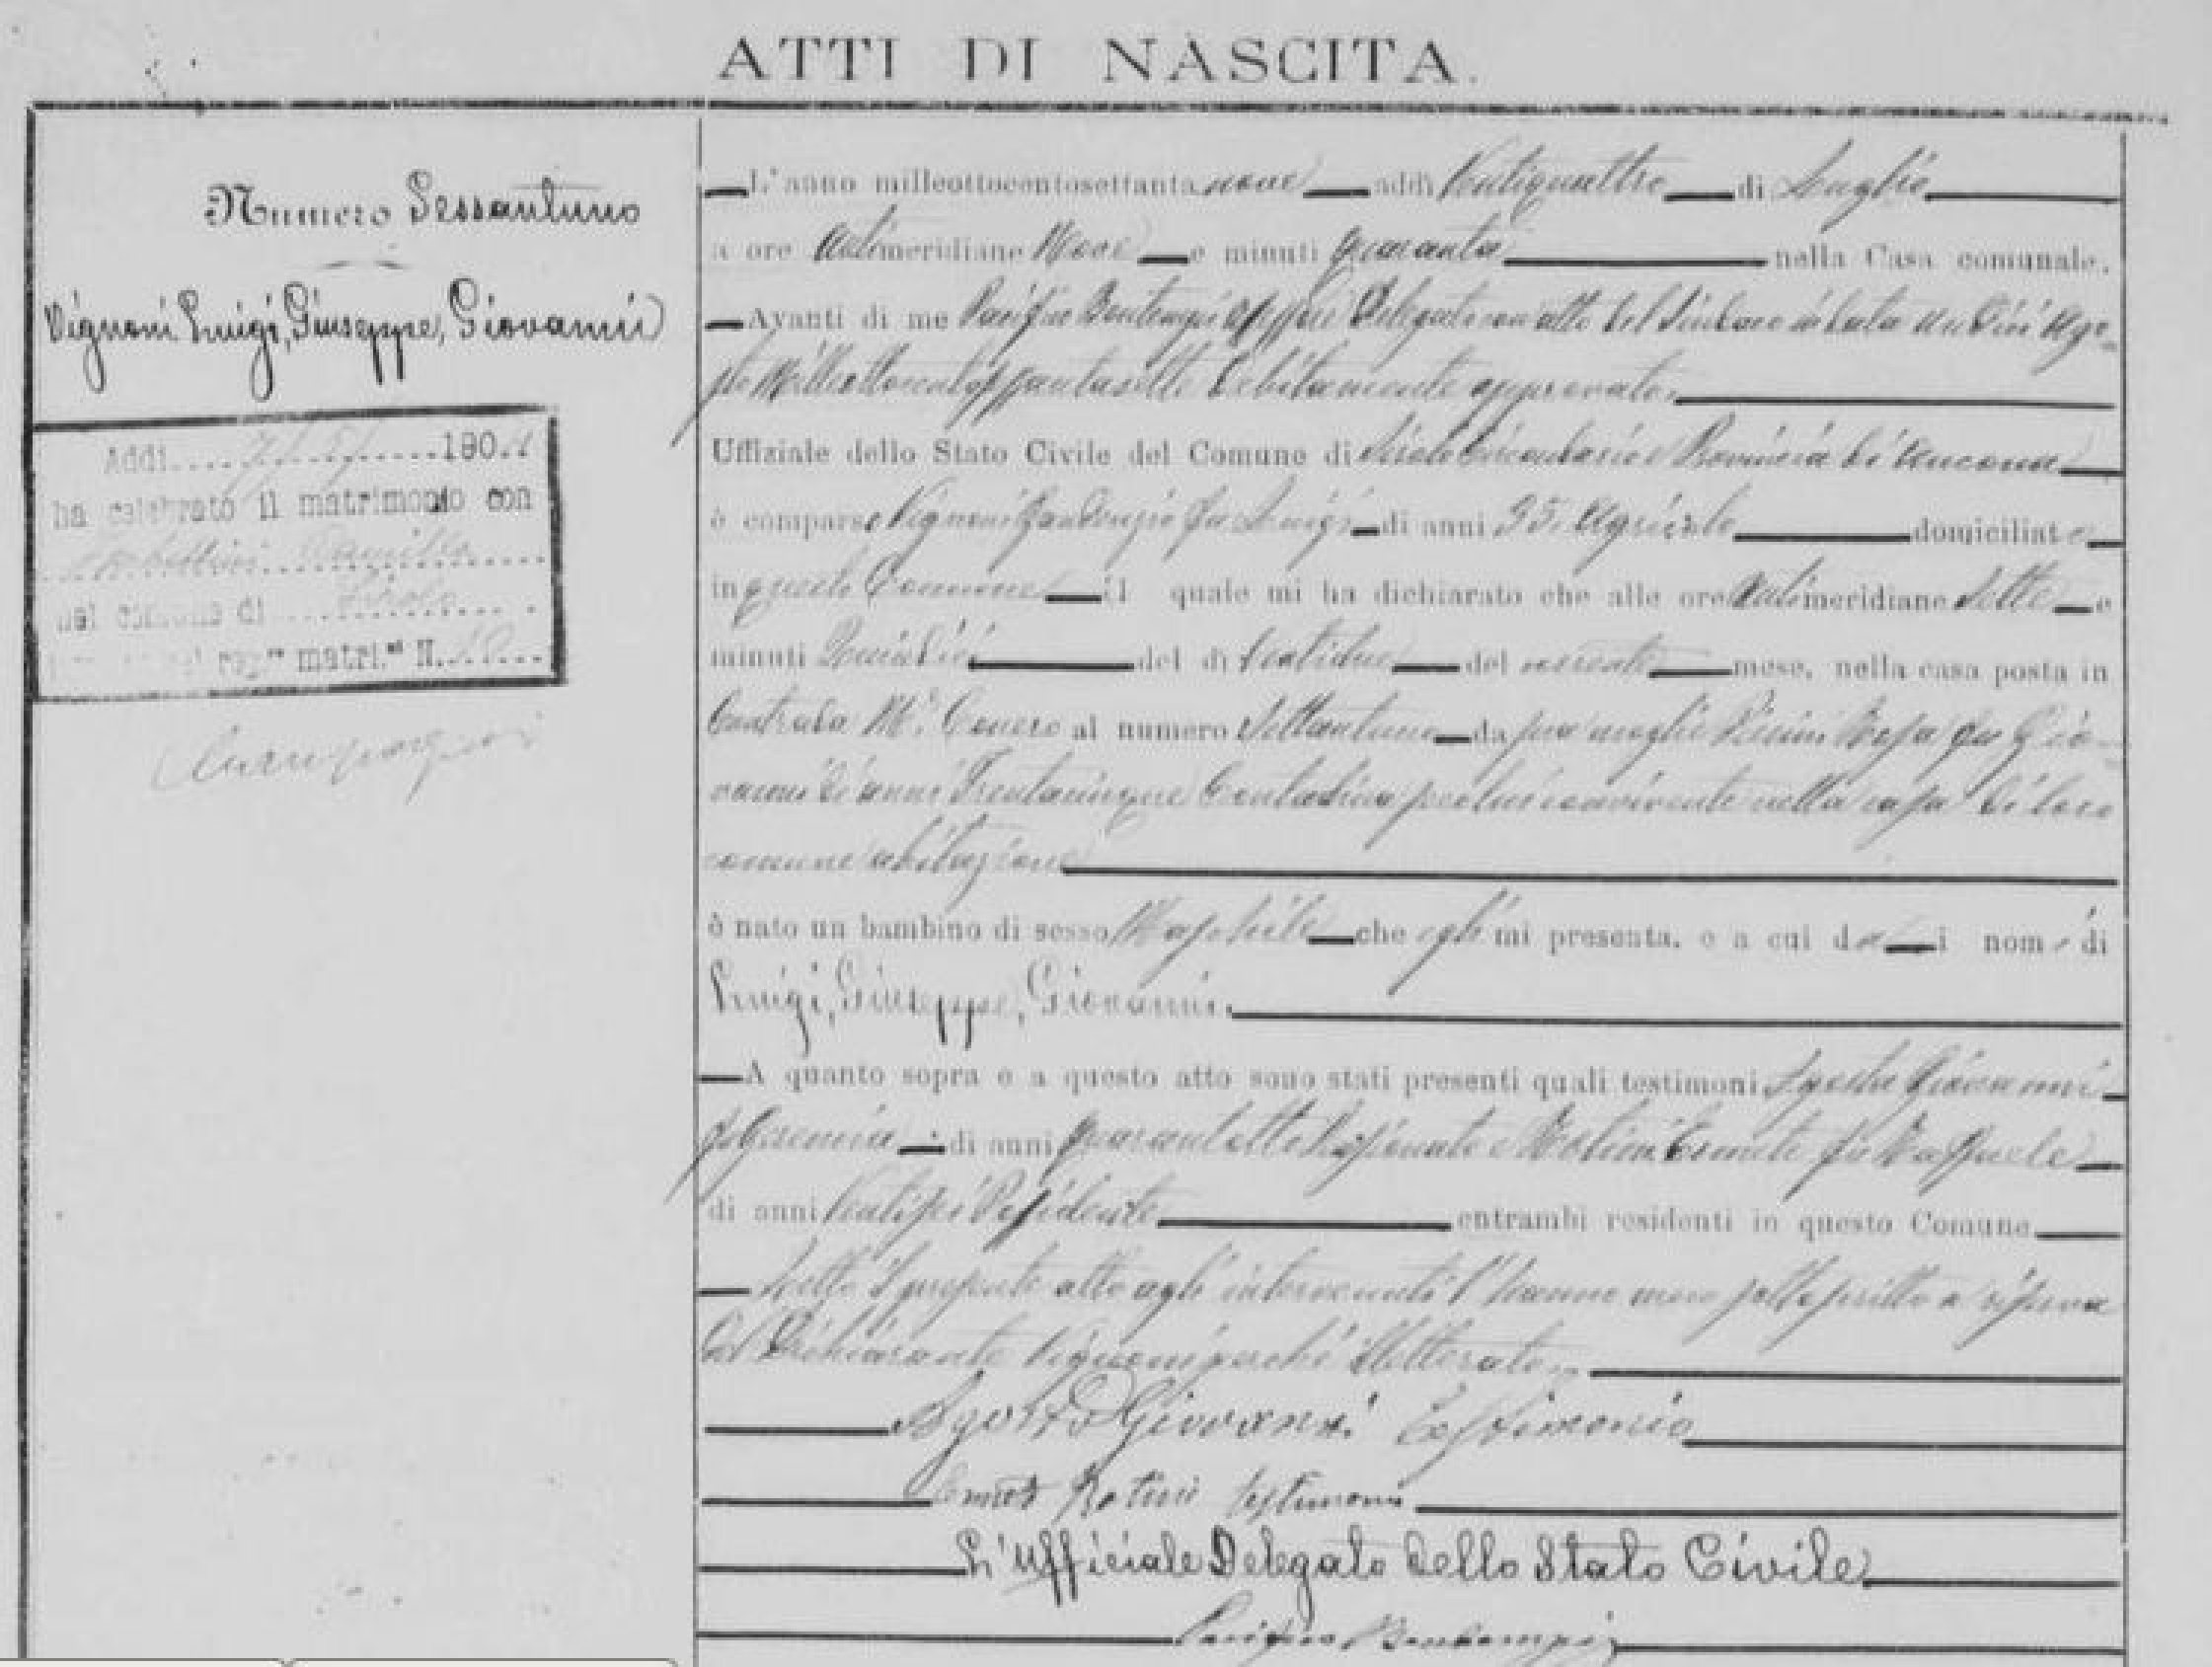 ATTI DI NASCITA.
Numero Sessantuno
Vignoni Luigi, Giuseppe, Giovanni
Addì 190
ha celebrato il matrimonio con
Camilla
nel comune di Sirolo
matri. N. 10
L'anno milleottocentosettanta nove addì Ventiquattro di Luglio
a ore Antimeridiane Nove e minuti quaranta nella Casa comunale.
Avanti di me Pacifico Bontempi Delegato con atto del Sindaco in data undici Ago-
sto Milleottocentosettantasette debitamente approvato.
Uffiziale dello Stato Civile del Comune di Sirolo Circondario e Provincia di Ancona
è comparso Vignoni Gaudenzio fu Luigi di anni 35 Agricolo domiciliato
in questo Comune il quale mi ha dichiarato che alle ore Antimeridiane Sette e
minuti Quindici del dì ventidue del corrente mese, nella casa posta in
Contrada M. Conero al numero Settantuno da sua moglie Rosa fu Gio-
vanni di anni Trentacinque Contadina seco lui convivente nella casa di loro
comune abitazione
è nato un bambino di sesso Maschile che egli mi presenta, e a cui da i nome di
Luigi, Giuseppe, Giovanni.
A quanto sopra e a questo atto sono stati presenti quali testimoni Giovanni
fu Geremia di anni e Ermete fu Raffaele
di anni Ventisei Possidente entrambi residenti in questo Comune
Letto il presente atto agli intervenuti l'hanno meco sottoscritto a riserva
del Dichiarante Vignoni perché illetterato.
Giovanni Testimonio
testimonio
L'Ufficiale Delegato dello Stato Civile
Pacifico Bontempi